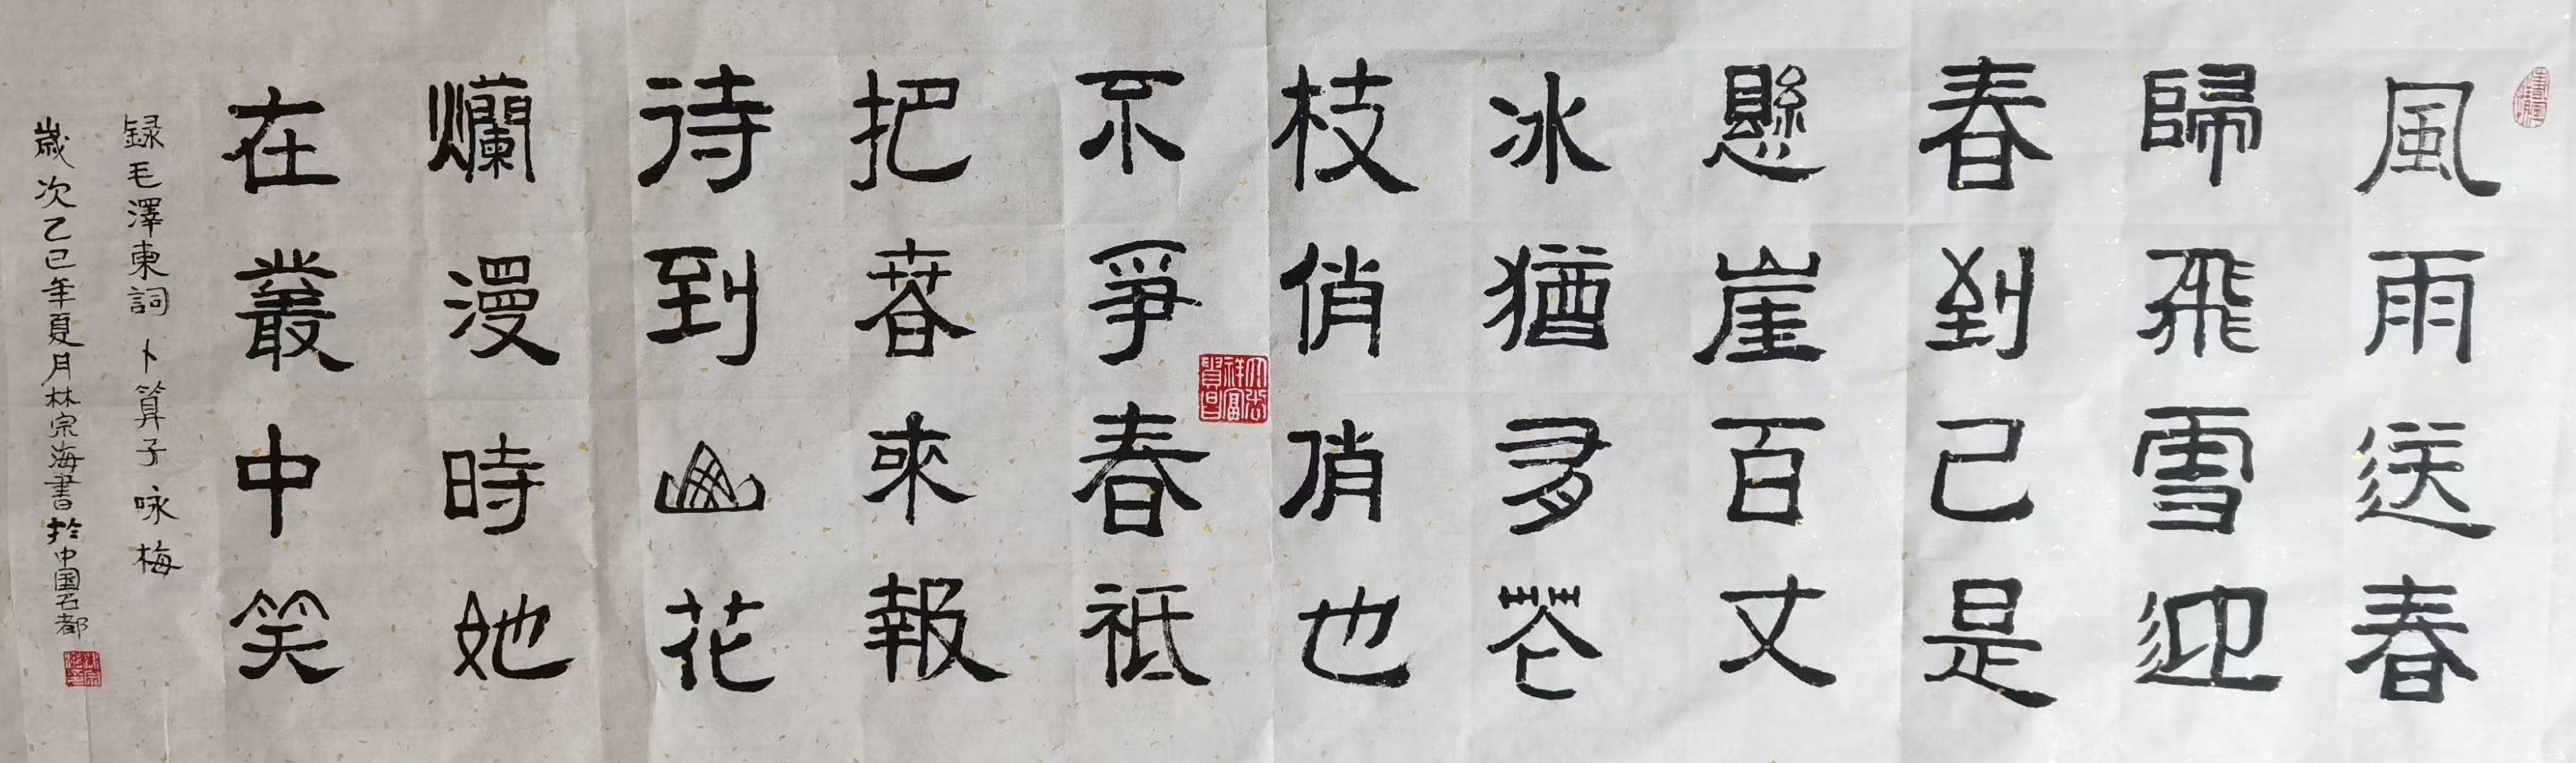 風雨送春
歸飛雪迎
春到已是
懸崖百丈
冰猶有花
枝俏俏也
不爭春祗
把春來報
待到山花
爛漫時她
在叢中笑
録毛澤東詞 卜算子 咏梅
歲次乙巳年夏月林宗海書於中国石都